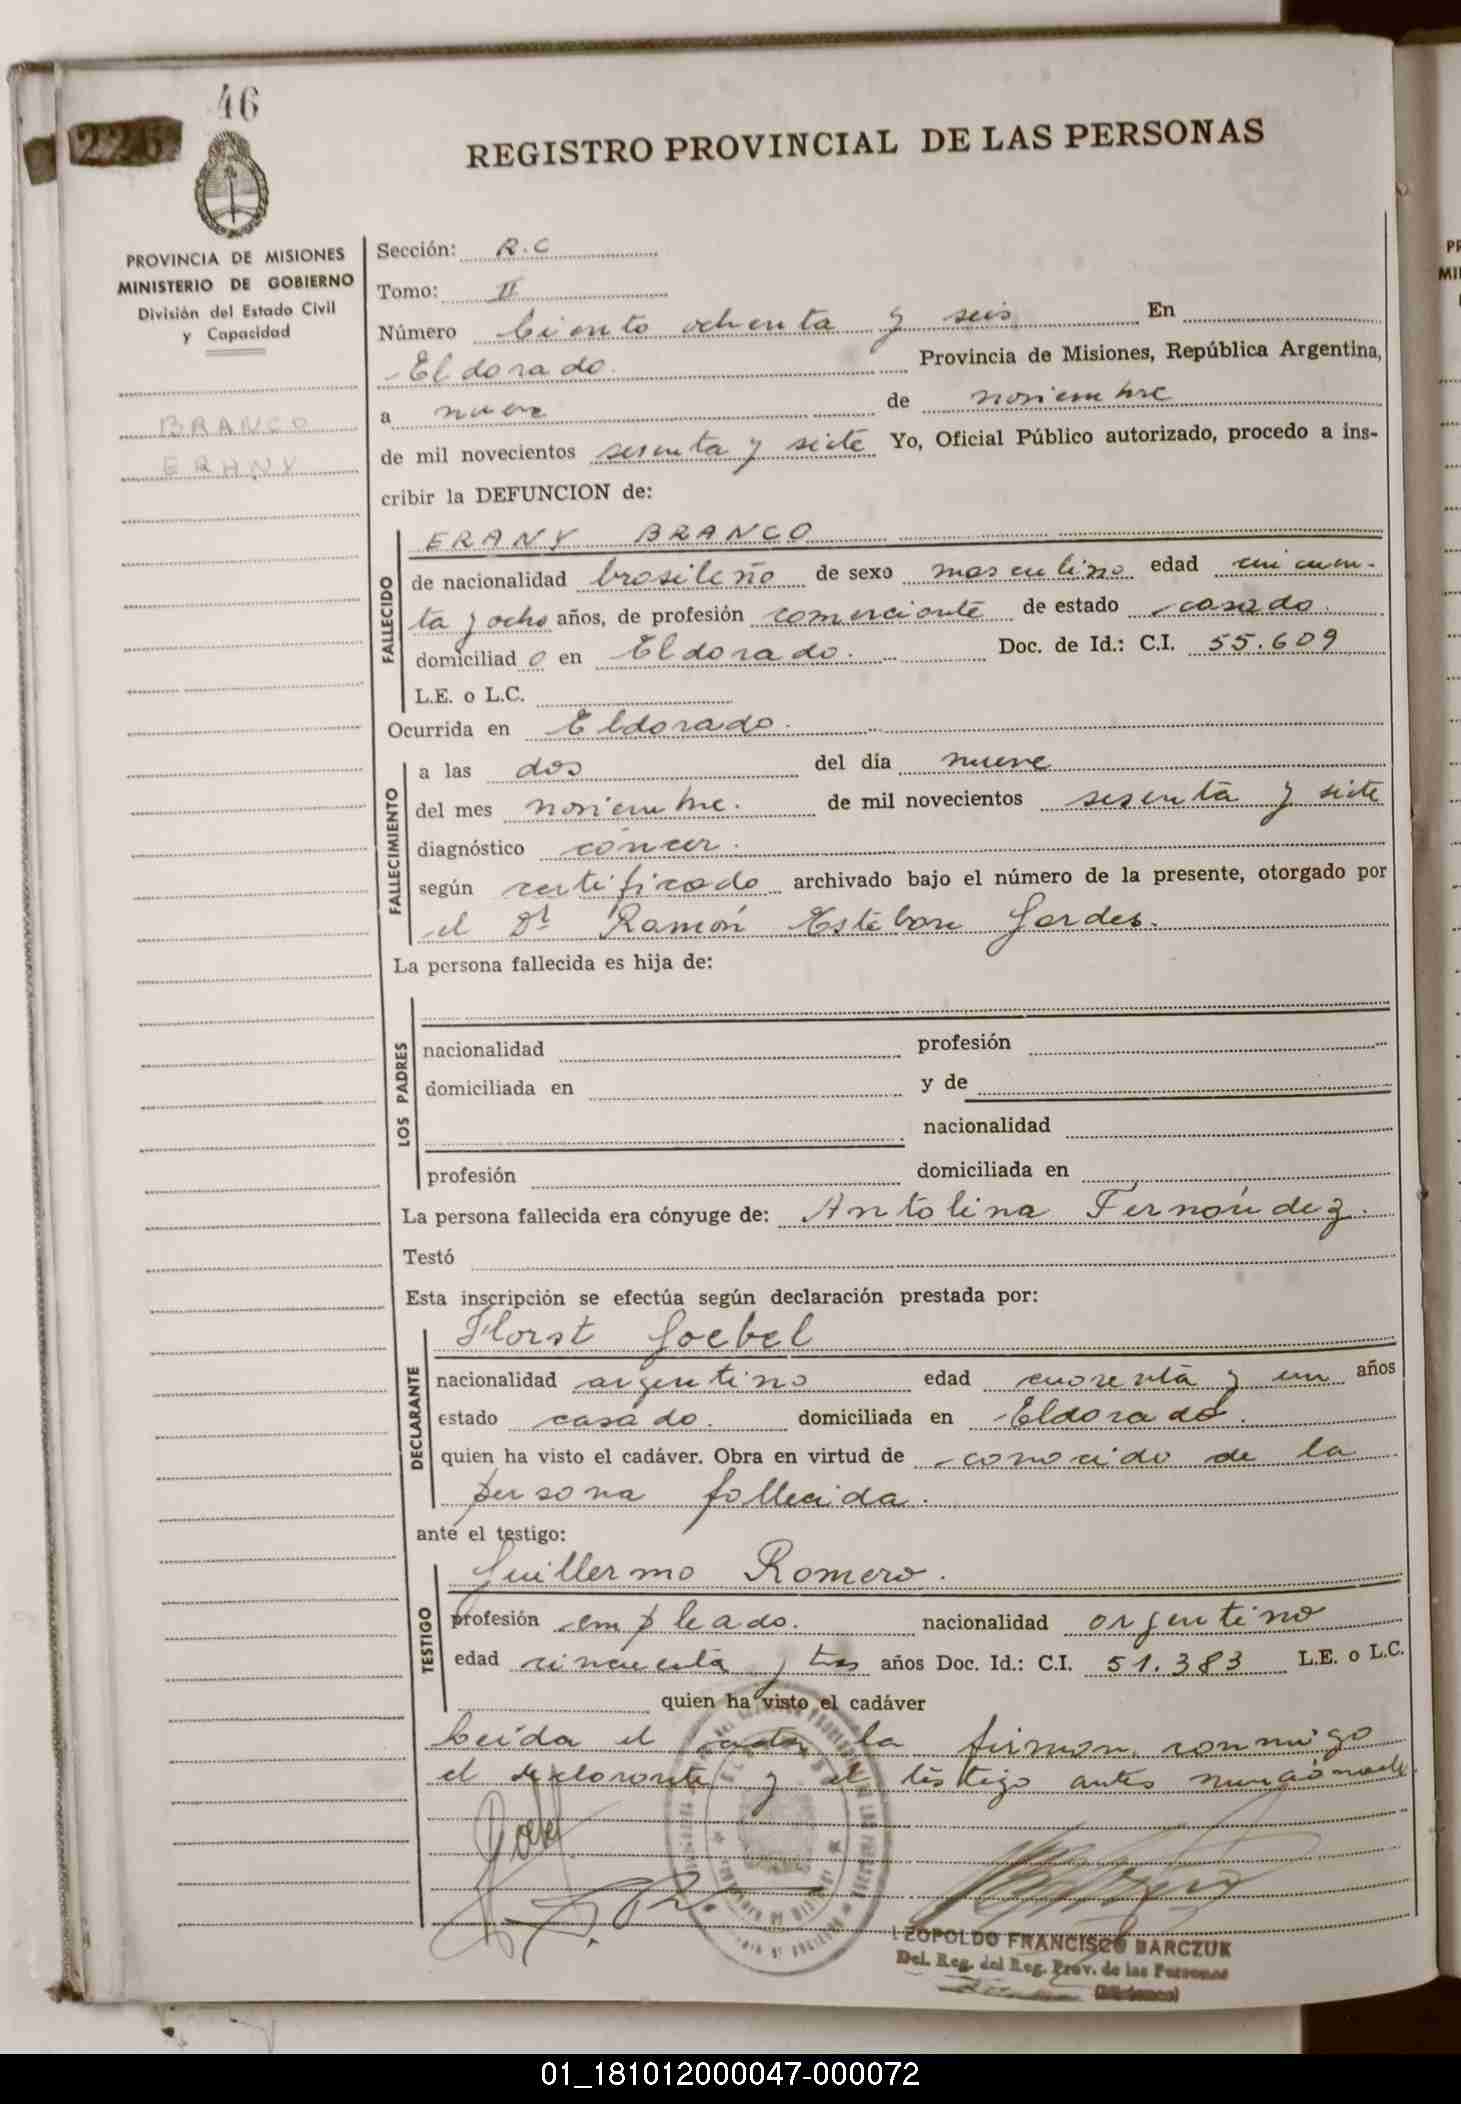 46
225
REGISTRO PROVINCIAL DE LAS PERSONAS
PROVINCIA DE MISIONES
MINISTERIO DE GOBIERNO
División del Estado Civil
y Capacidad
BRANCO
ERANY
Sección: R.C
Tomo: II
Número Ciento ochenta y seis En
Eldorado. Provincia de Misiones, República Argentina,
a nueve de noviembre
de mil novecientos sesenta y siete Yo, Oficial Público autorizado, procedo a ins-
cribir la DEFUNCION de:
FALLECIDO
ERANY BRANCO
de nacionalidad brasileño de sexo masculino edad cincuen-
ta y ocho años, de profesión comerciante de estado casado.
domiciliad o en Eldorado. Doc. de Id.: C.I. 55.609
L.E. o L.C.
Ocurrida en Eldorado.
FALLECIMIENTO
a las dos del día nueve
del mes noviembre. de mil novecientos sesenta y siete
diagnóstico cáncer.
según certificado archivado bajo el número de la presente, otorgado por
el Dr Ramón Esteban Gerdes.
La persona fallecida es hija de:
LOS PADRES
nacionalidad profesión
domiciliada en y de
nacionalidad
profesión domiciliada en
La persona fallecida era cónyuge de: Antolina Fernández.
Testó
Esta inscripción se efectúa según declaración prestada por:
DECLARANTE
Horst Goebel
nacionalidad argentino edad cuarenta y un años
estado casado. domiciliada en Eldorado.
quien ha visto el cadáver. Obra en virtud de conocido de la
persona fallecida.
ante el testigo:
TESTIGO
Guillermo Romero.
profesión empleado. nacionalidad argentino
edad cincuenta y tres años Doc. Id.: C.I. 51.383 L.E. o L.C.
quien ha visto el cadáver
Leída el acta la firman conmigo
el declarante y el testigo antes mencionado
LEOPOLDO FRANCISCO BARCZUK
Del. Reg. del Reg. Prov. de las Personas
(Misiones)
01_181012000047-000072